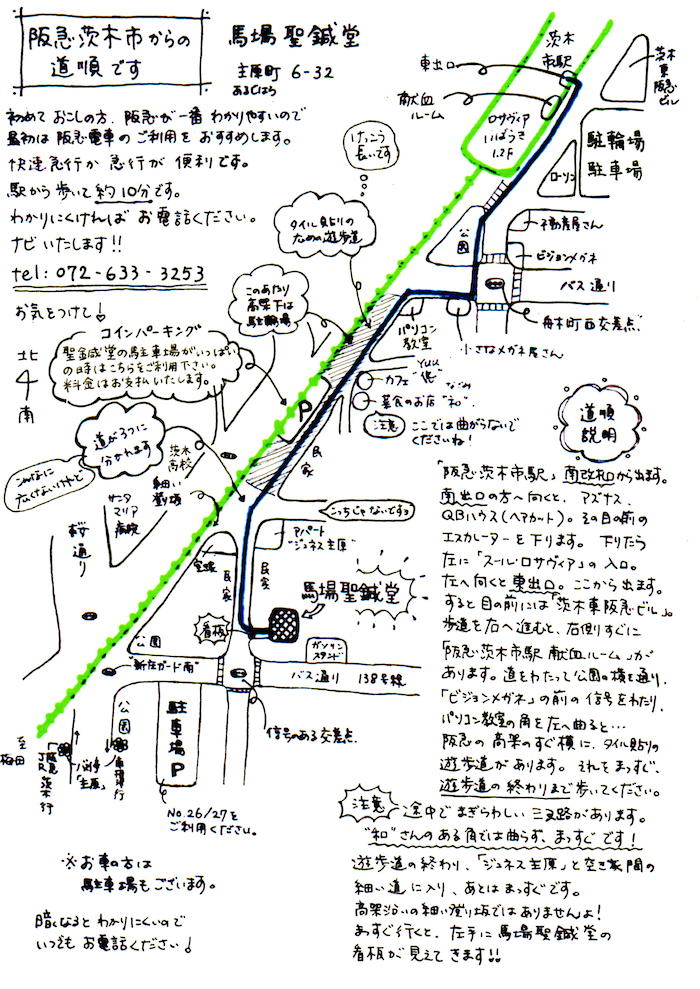 阪急茨木市からの
道順です
馬場聖鍼堂
主原町 6-32
あるじはら
初めて おこしの方、阪急が一番 わかりやすいので
最初は 阪急電車の ご利用を おすすめします。
快速急行か 急行が 便利です。
駅から 歩いて 約10分です。
わかりにくければ お電話ください。
ナビ いたします!!
tel: 072-633-3253
お気をつけて
北
南
コインパーキング
聖鍼堂の駐車場がいっぱい
の時はこちらをご利用下さい。
料金はお支払いたします。
このあたり
高架下は
駐輪場
タイル貼りの
ための遊歩道
けっこう
長いです
東出口
献血
ルーム
茨木
市駅
ロサヴィア
いばらき
1.2F
茨木
東
阪急
ビル
駐輪場
駐車場
ローソン
公園
不動産屋さん
ビジョンメガネ
バス通り
舟木町西交差点
小さなメガネ屋さん
パソコン
教室
カフェ
YUU
悠
なごめ
菜食のお店"和"
注意
ここでは曲がらないで
くださいね!
P
民家
道が3つに
分かれます
茨木
高校
細い
登坂
サンタ
マリア
病院
桜通り
こっちじゃ ないですョ
アパート
"ジュネス主原"
空家
民家
民家
馬場聖鍼堂
看板
公園
ガソリン
スタンド
"新庄ガード南"
バス通り 138号線
信号のある交差点
公園
駐車場P
No.26/27を
ご利用ください。
至
梅田
バス停
「主原」
阪急
JR茨木行
※お車の方は
駐車場もございます。
暗くなると わかりにくいので
いつでも お電話ください!
道順
説明
「阪急茨木市駅」南改札口から出ます。
南出口の方へ向くと、アズナス、
QBハウス(ヘアカット)。その目の前の
エスカレーターを下ります。下りたら
左に「スール・ロサヴィア」の入口。
左へ向くと東出口。ここから出ます。
すると目の前には「茨木東阪急ビル」。
歩道を右へ進むと、右側すぐに
「阪急茨木市駅 献血ルーム」が
あります。道をわたって公園の横を通り、
「ビジョンメガネ」の前の信号をわたり、
パソコン教室の角を左へ曲ると…
阪急の高架のすぐ横に、タイル貼りの
遊歩道があります。それをまっすぐ、
遊歩道の終わりまで歩いてください。
注意
途中でまぎらわしい三叉路があります。
"和"さんのある角では曲らず、まっすぐです!
遊歩道の終わり、「ジュネス主原」と空き家間の
細い道に入り、あとはまっすぐです。
高架沿いの細い登り坂ではありませんよ!
まっすぐ行くと、左手に馬場聖鍼堂の
看板が見えてきます!!